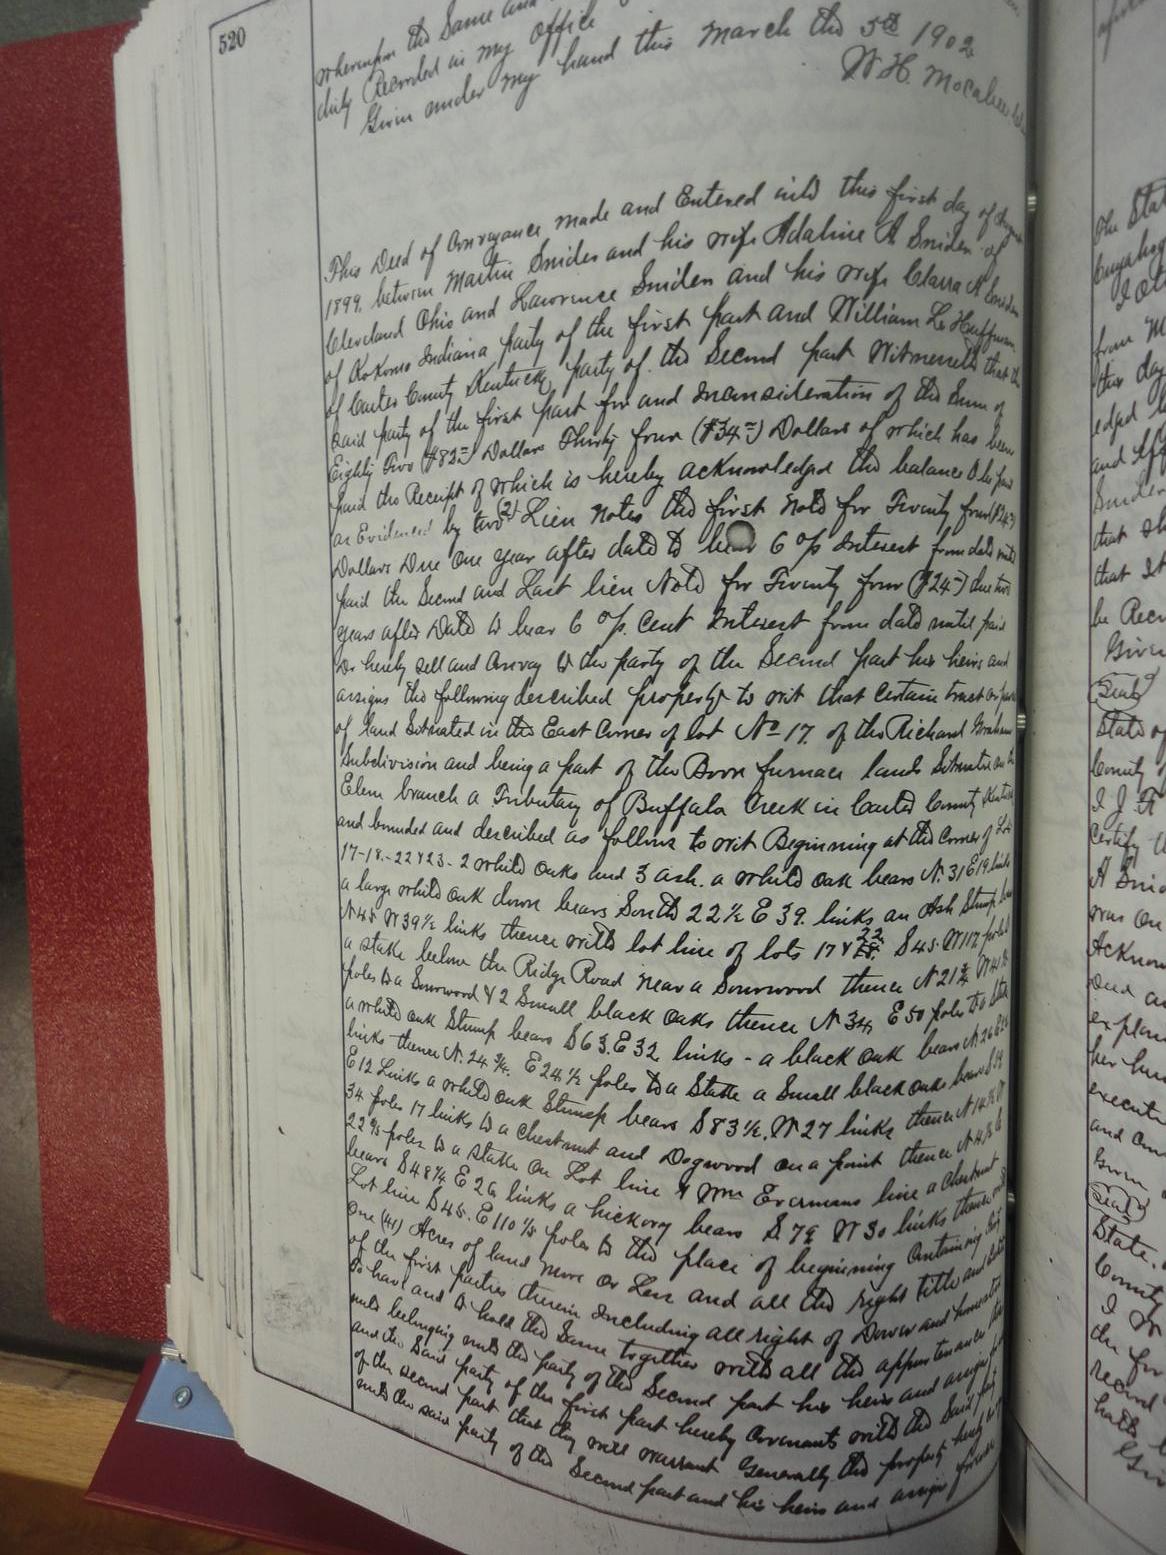 520
whereupon the Same and
duly Recorded in my Office
Given under my hand this March the 5th 1902
W. H. McCabe
This Deed of Conveyance made and Entered into this first day of August
1899. between Martin Snider and his wife Adaline A Snider of
Cleveland Ohio and Lawrence Snider and his wife Clara A Snider
of Kokomo Indiana party of the first part and William L. Huffman
of Carter County Kentucky party of the Second part Witnesseth that the
said party of the first part for and inconsideration of the Sum of
Eighty Two ($82=) Dollars Thirty four ($34=) Dollars of which has been
paid the Receipt of which is hereby acknowledged the balance to be paid
as Evidenced by two (2) Lien notes the first note for Twenty four ($24=)
Dollars Due One year after date to bear 6 % Interest from date until
paid the Second and Last lien Note for Twenty four ($24=) due two
years after Date to bear 6 % cent Interest from date until paid
Do hereby sell and Convey to the party of the Second part his heirs and
assigns the following described property to wit that certain tract or parcel
of land Situated in the East Corner of lot No 17. of the Richard Graham
Subdivision and being a part of the Boon furnace lands Situate on the
Elem branch a Tributary of Buffalo Creek in Carter County Kentucky
and bounded and described as follows to wit Beginning at the Corner of Lots
17-18-22 & 23 - 2 white Oaks and 3 ash. a white oak bears N. 31 E 19 links
a large white oak down bears South 22 1/2 E 39. links an Ash Stump bears
N 45 W 39 1/2 links thence with lot line of lots 17 & 22. S 45. W 117 poles
a stake below the Ridge Road near a Sourwood thence N 21 3/4 W
poles to a Sourwood & 2 Small black oaks thence N 34 E 50 poles to a Stake
a white oak Stump bears S 63. E 32 links - a black oak bears N. 26 E
links thence N. 24 3/4. E 24 1/2 poles to a Stake a Small black oak bears S 19
E 12 Links a white oak Stump bears S 83 1/2. W 27 links thence N 14 W
34 poles 17 links to a Chestnut and Dogwood on a point thence N
22 poles to a stake on Lot line & Wm Evermans line a Chestnut
bears S 48 1/4 E 26 links a hickory bears S. 79 W 30 links thence with
Lot line S 45. E 110 poles to the place of beginning Containing forty
One (41) Acres of land More Or Less and all the right title and
of the first parties therein including all right of Dower and homestead
To have and to hold the Same together with all the appurtenances
unto belonging unto the party of the Second part his heirs and assigns
and the said party of the first part hereby Covenants with the said party
of the second part that they will warrant Generally the property hereby
unto the said party of the Second part and his heirs and assigns forever
The State
Cuyahoga
from
this day
edged
and
Snider
that
that It
be Rec
Given
Seal
State of
County of
I J
Certify
was on
Acknow
Deed
explain
her hus
execute
and
Given
Seal
State
County
I
the for
record
hath
Given